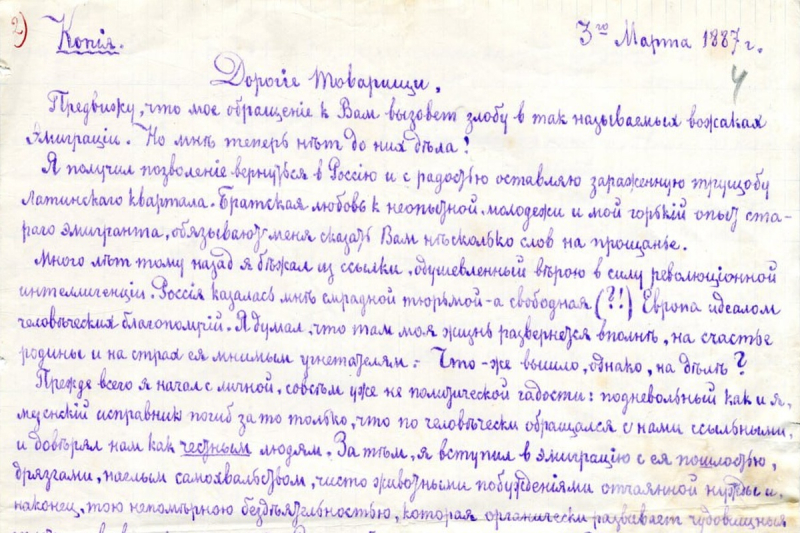 2)
Копія.
3го Марта 1887 г.
4
Дорогіе товарищи,
Предвижу, что мое обращеніе к Вам вызовет злобу в так называемых вожаках
эмиграціи. Но мнѣ теперь нѣт до них дѣла!
Я получил позволеніе вернуться в Россію и с радостью оставляю зараженную трущобу
Латинскаго квартала. Братская любовь к неопытной молодежи и мой горькій опыт ста-
раго эмигранта, обязывают меня сказать Вам нѣсколько слов на прощанье.
Много лѣт тому назад я бѣжал из ссылки, одушевленный вѣрою в силу революціонной
интеллигенціи. Россія казалась мнѣ смрадной тюрьмой-а свободная (?!) Европа идеалом
человѣческих благополучій. Я думал, что там моя жизнь развернется вполнѣ, на счастье
родины и на страх ея мнимым угнетателям. Что-же вышло, однако, на дѣлѣ?
Прежде всего я начал с личной, совсѣм уже не политической гадости: подневольный как и я,
мезенскій исправник погиб за то только, что по человѣчески обращался с нами ссыльными,
и довѣрял нам как честным людям. Затѣм, я вступил в эмиграцію с ея пошлостью,
дрязгами, наглым самохвальством, чисто животными побужденіями отчаянной нужды и,
наконец, тою непомѣрною бездѣятельностью, которая органически развивает чудовищныя